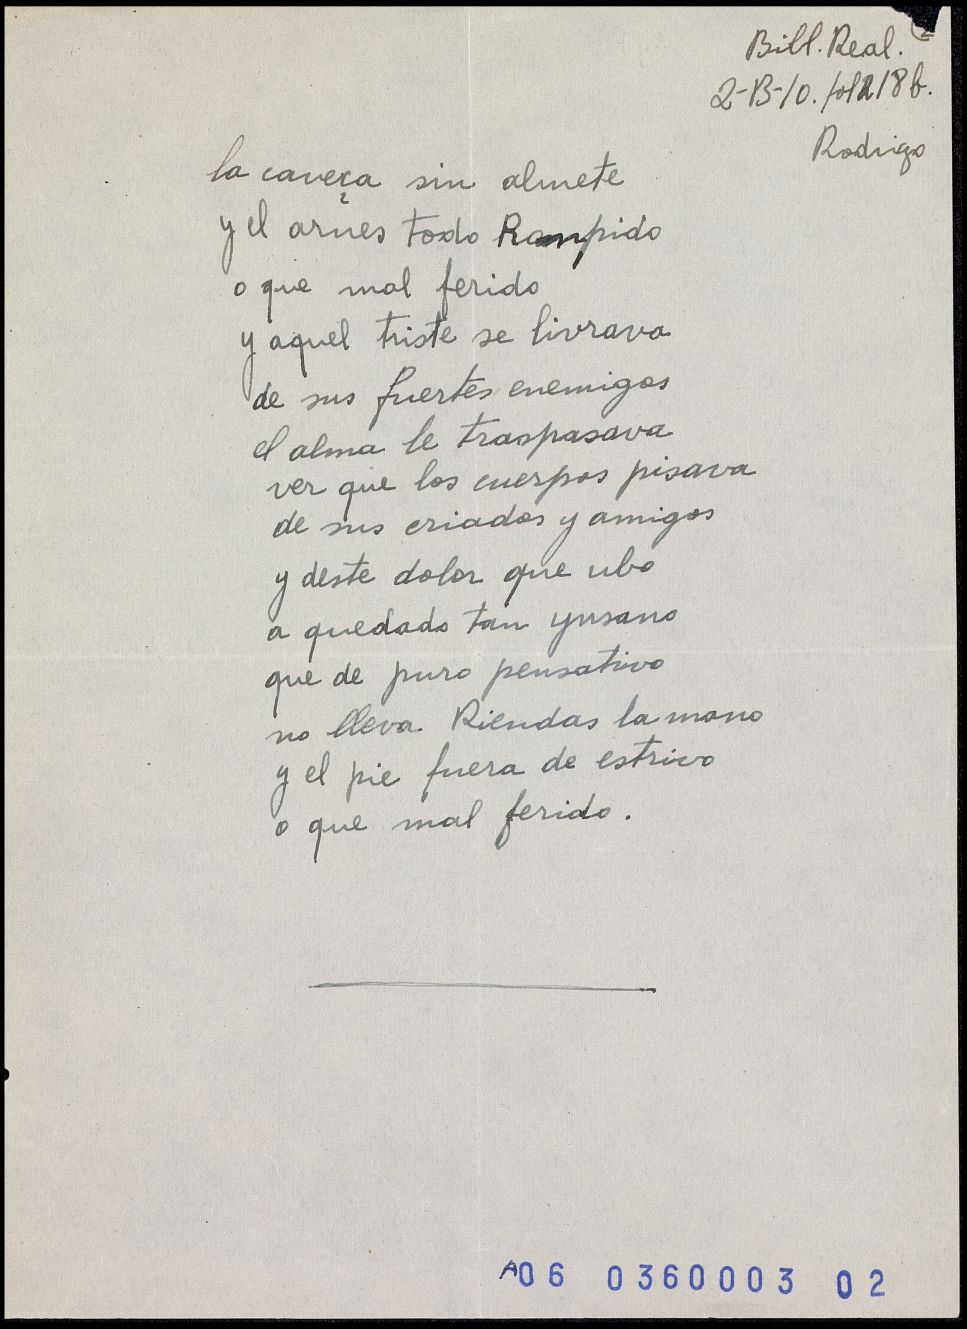 2
Bibl. Real.
2-B-10. fol 218 b.
Rodrigo
la caveça sin almete
y el arnes todo Rompido
o que mal ferido
y aquel triste se livrava
de sus fuertes enemigos
el alma le traspasava
ver que los cuerpos pisava
de sus criados y amigos
y deste dolor que ubo
a quedado tan ynsano
que de puro pensativo
no lleva Riendas la mano
y el pie fuera de estrivo
o que mal ferido.
A06 0360003 02